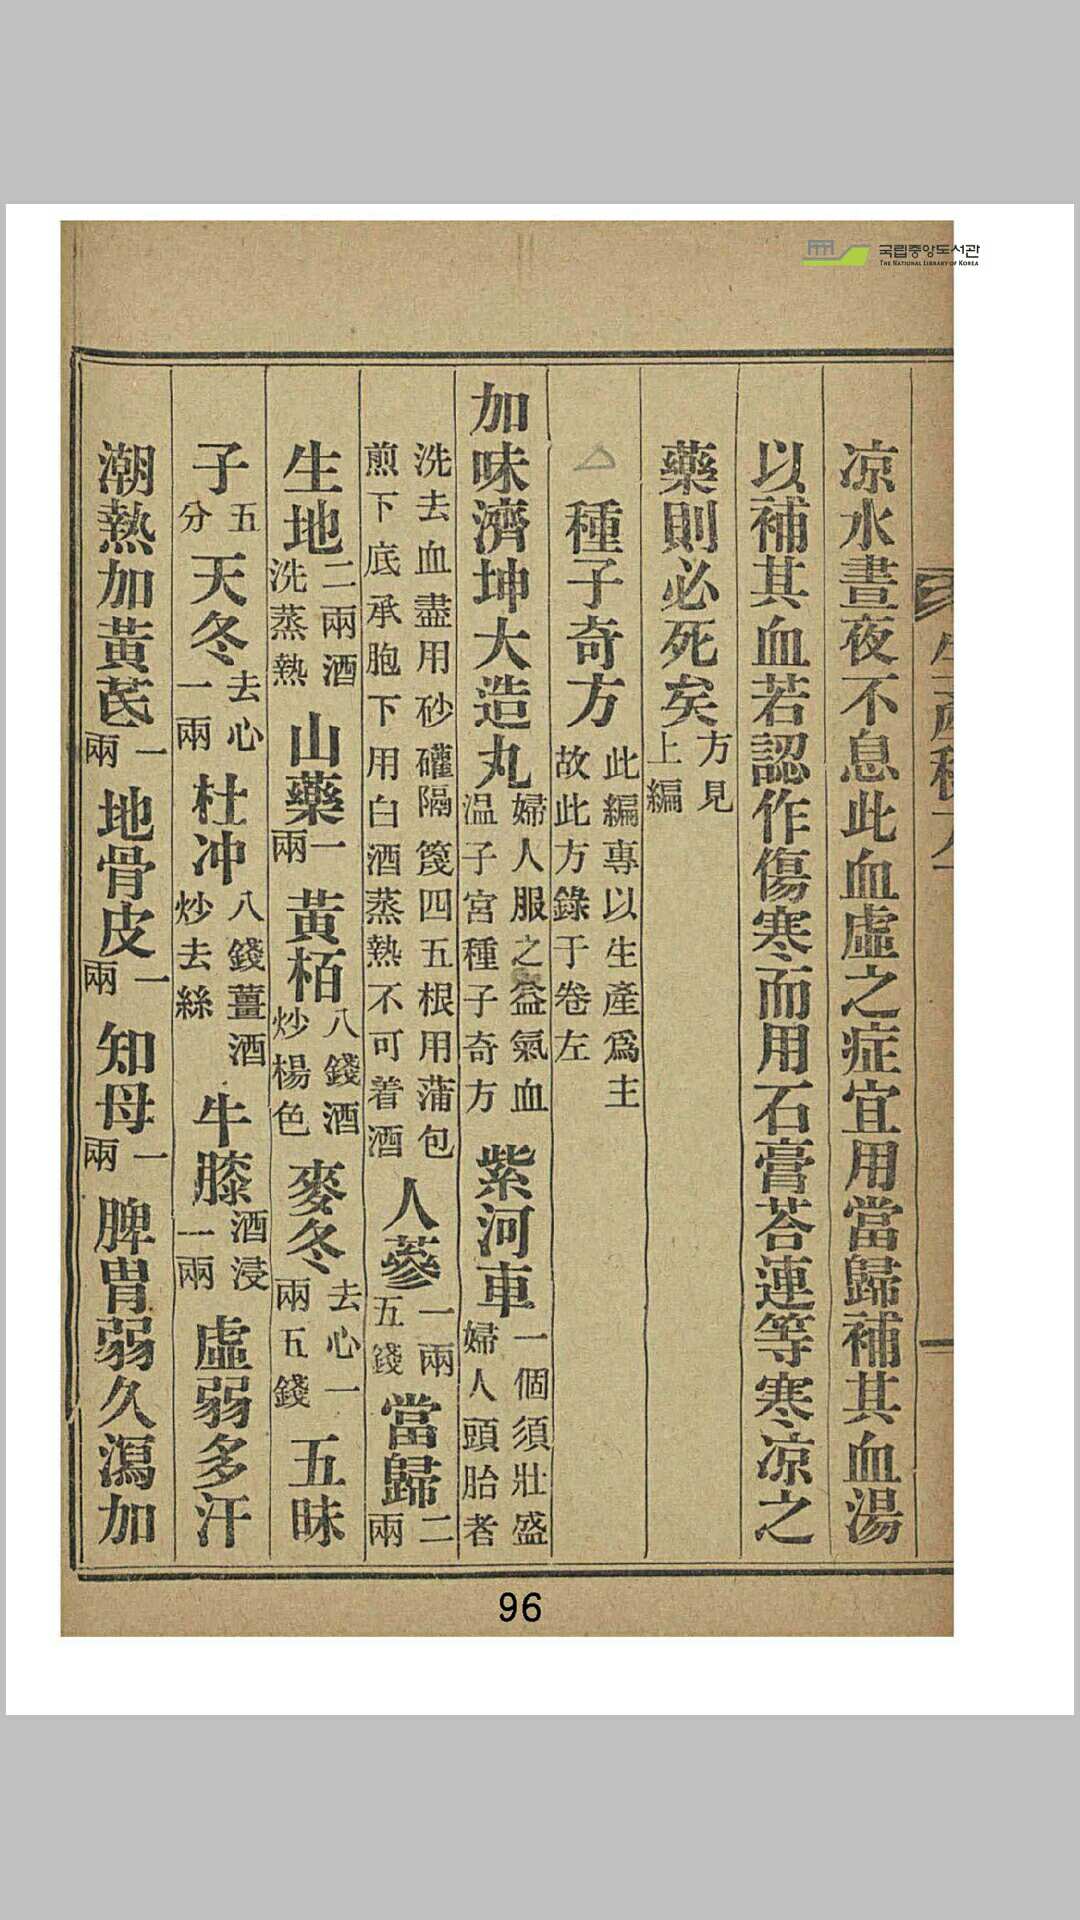 국립중앙도서관
THE NATIONAL LIBRARY OF KOREA
凉水晝夜不息此血虛之症宜用當歸補其血湯
以補其血若認作傷寒而用石膏苔連等寒凉之
藥則必死矣方見上編
△種子奇方此編專以生產爲主故此方錄于卷左
加味濟坤大造丸婦人服之益氣血温子宮種子奇方紫河車一個須壯盛婦人頭胎者
洗去血盡用砂礶隔篾四五根用蒲包煎下底承胞下用白酒蒸熱不可着酒人蔘一兩五錢當歸二兩
生地二兩酒洗蒸熱山藥一兩黃栢八錢酒炒楊色麥冬去心一兩五錢五味
子五分天冬去心一兩杜冲八錢薑酒炒去絲牛膝酒浸一兩虛弱多汗
潮熱加黃芪一兩地骨皮一兩知母一兩脾胃弱久瀉加
96